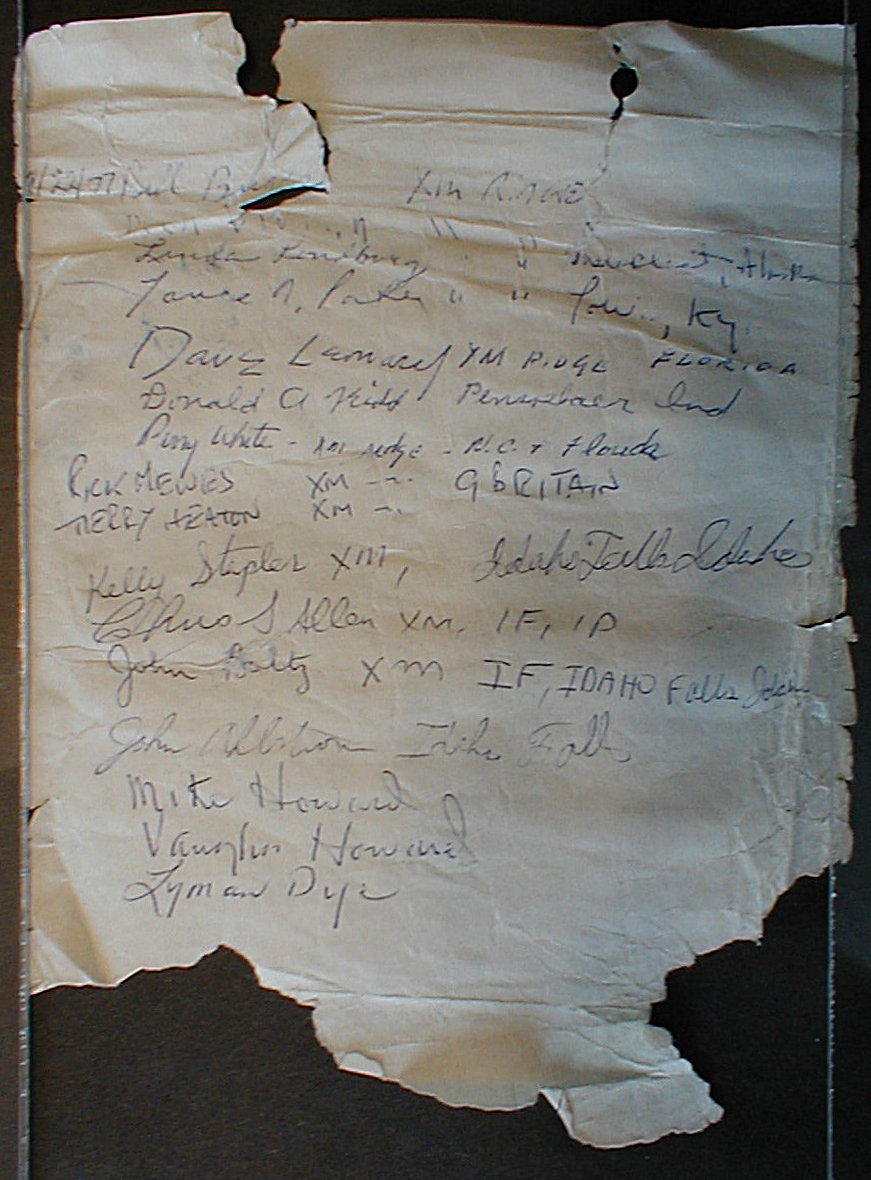 /22/77 Bill XM RIDGE
" "
Linda " " Alaska
" " Ky.
Dave Leonard XM RIDGE FLORIDA
Donald A Kidd Ind
Perry White - XM ridge - N.C. & Florida
RICK MEWES XM -"- G BRITAIN
TERRY HEATON XM -"-
Kelly Stepler XM, Idaho Falls Idaho
Chris S Allen XM. IF, ID
John Boltz XM IF, IDAHO Falls Idaho
John Ahlstrom Idaho Falls
Mike Howard
Vaughn Howard
Lyman Dye